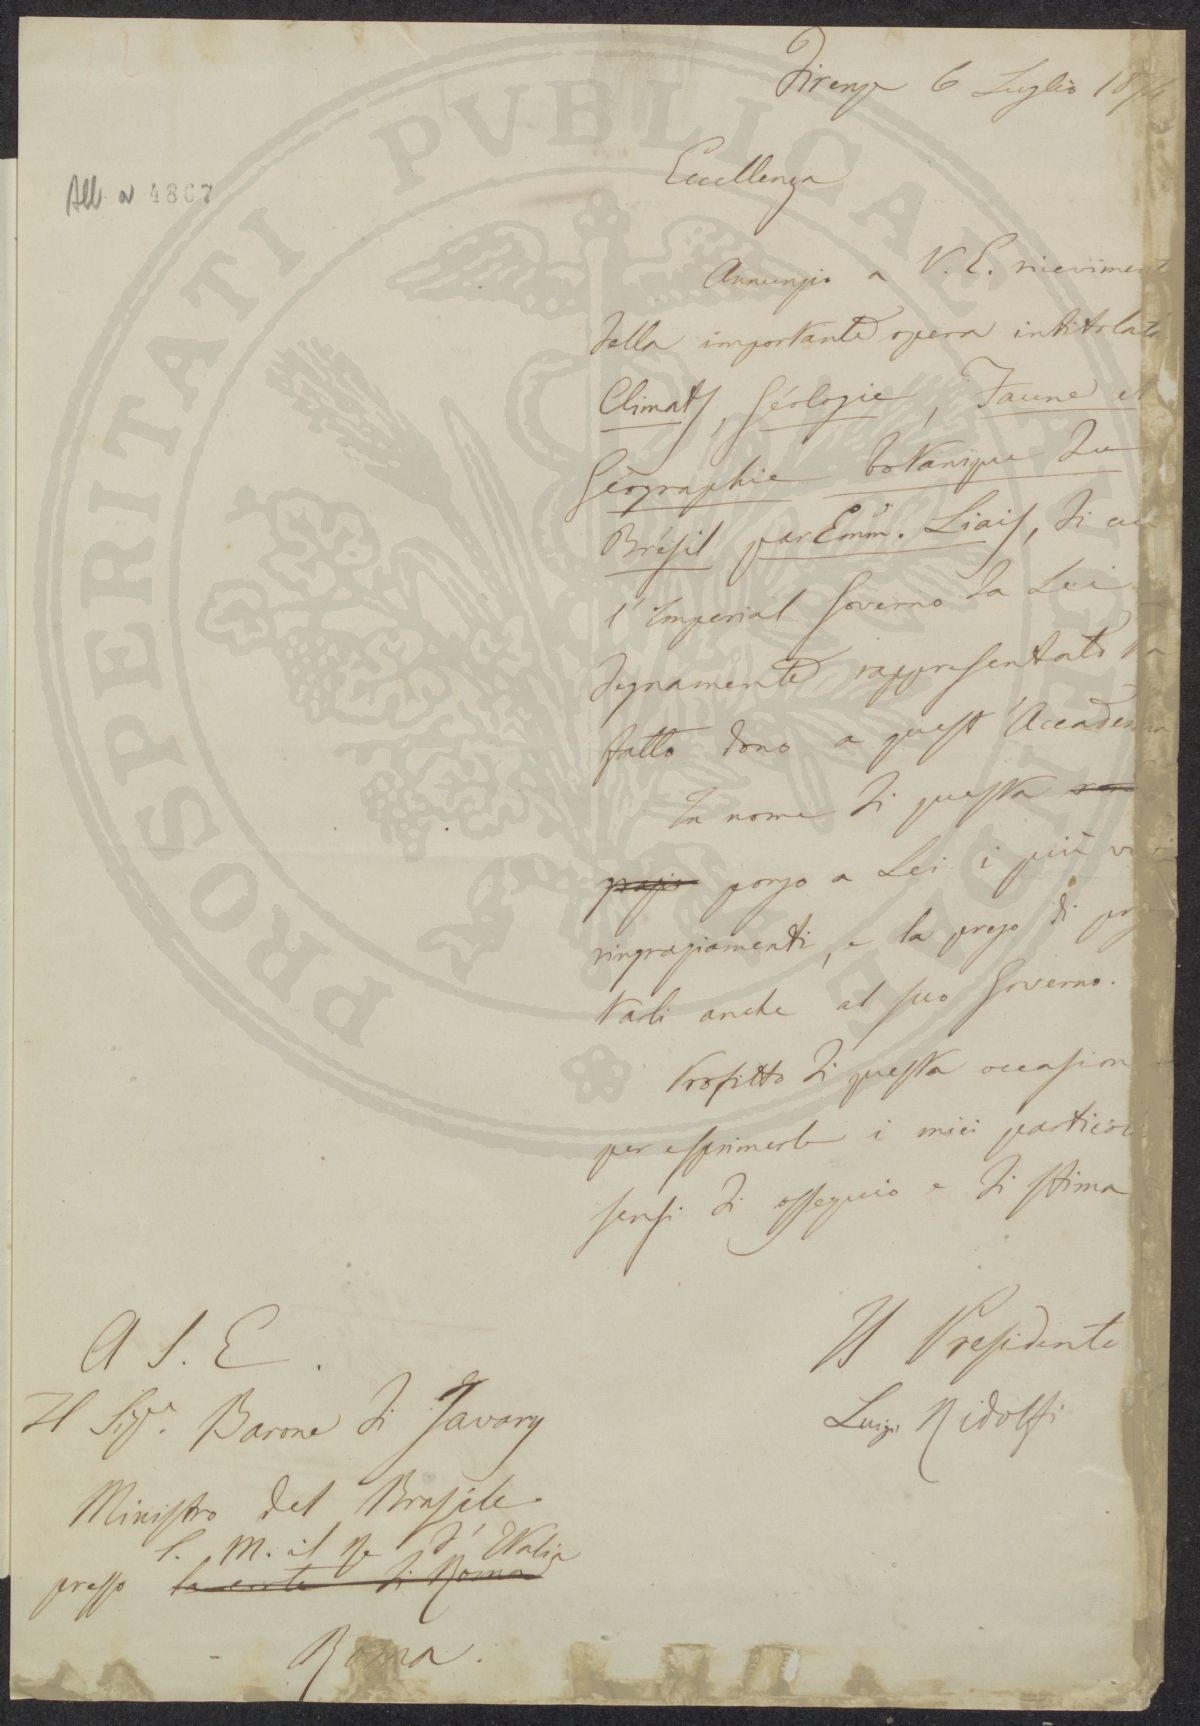 Firenze 6 Luglio 187
All a 4867
Eccellenza
Annunzio a V. E. riceviment
della importante opera intitolata
Climats, Géologie, Faune et
Géographie botanique du
Brésil par Emm. Liais, di cui
l'Imperial Governo da Lei
degnamente rappresentato ha
fatto dono a quest'Accadem
In nome di questa
porgo a Lei i più vivi
ringraziamenti, e la prego di
tarli anche al suo Governo.
Profitto di questa occasion
per esprimerle i miei partico
sensi di ossequio e di stima
Il Presidente
Luigi Ridolfi
A S. E.
Il Sigr. Barone di Javary
Ministro del Brasile
S. M. il Re d'Italia
presso la corte di Roma
Roma.
PROSPERITATI PVBLICAE